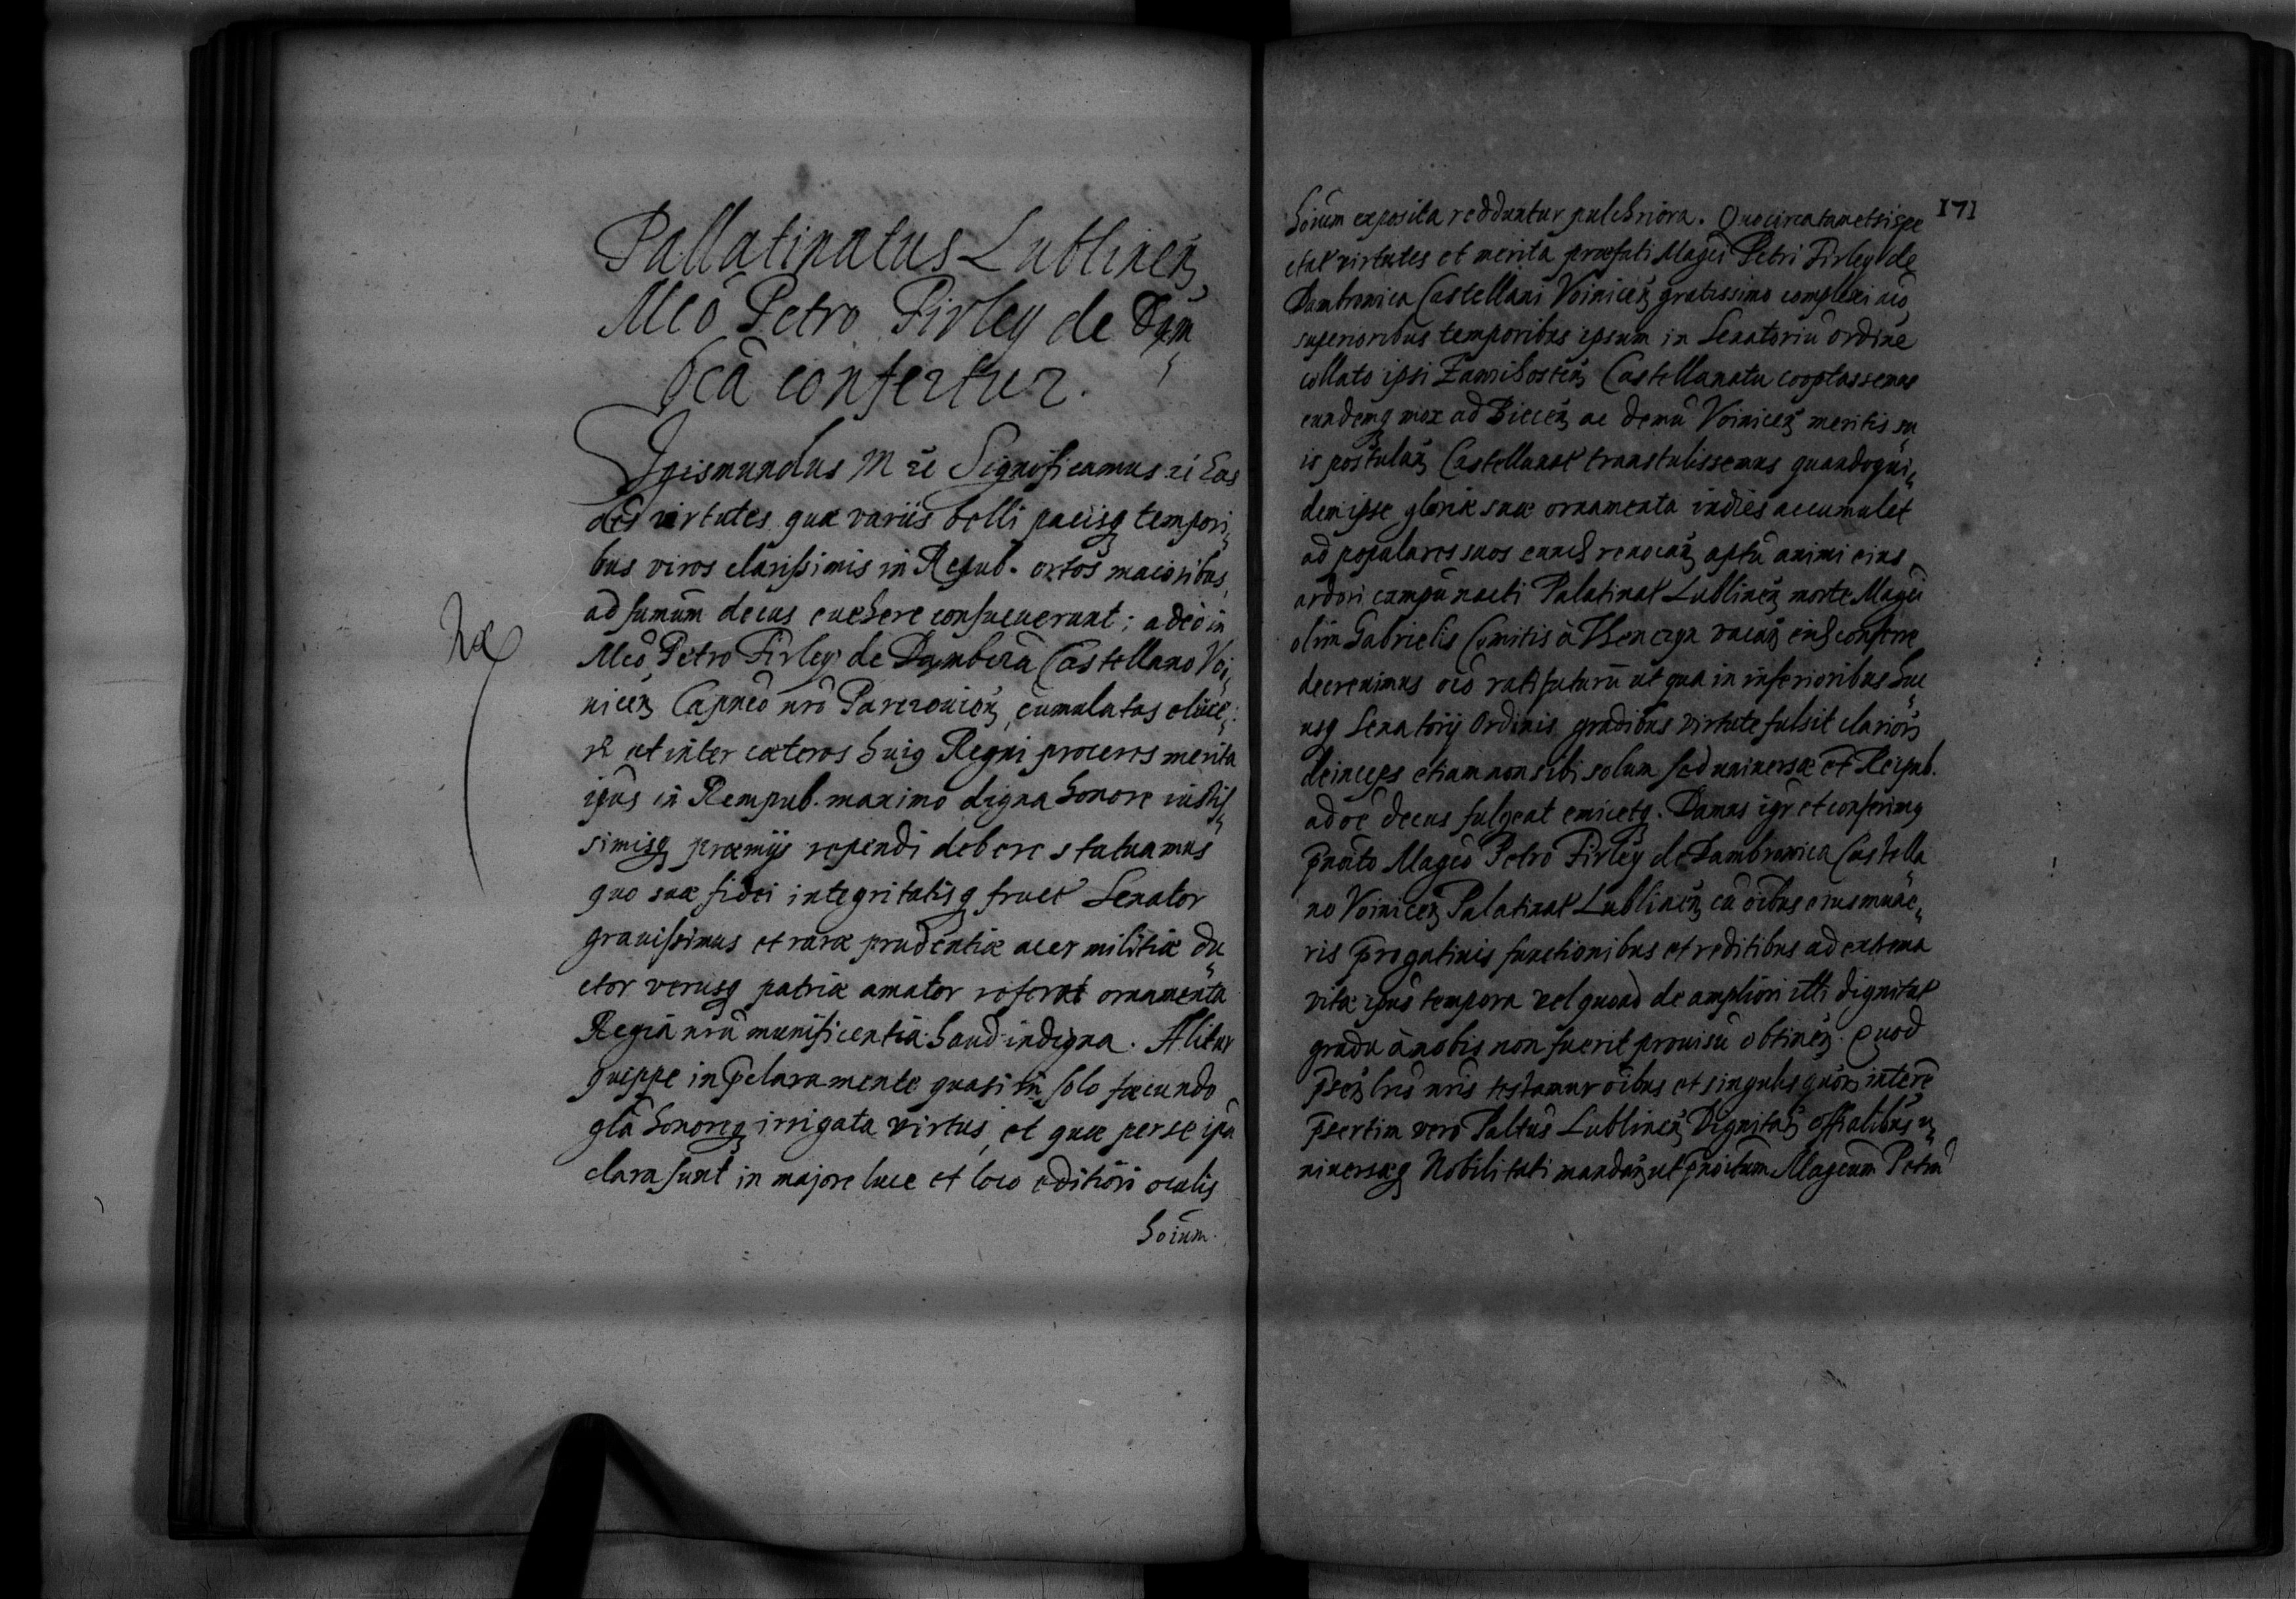 Pallatinatus Lublineñ
Mcõ Petro Firley de Dąm
bcã confertur.
Sigismundus III &c Significamus &c Eas
des virtutes quæ variis belli pacisq tempori,,
bus viros clarissimis in Repub. ortos maioribus
ad sumum decus euehere consueuerunt; adeo in
Mcõ Petro Firley de Dąmbcza Castellano Voi,,
niceñ Capneõ nrõ Parczouieñ cumulatas eluce:
re et inter cæteros huiq Regni proceres merita
ipius in Rempub. maximo digna honore iustis,,
simisq præmijs rependi debere statuamus
quo suæ fidei integritatisq fruct Senator
grauissimus et raræ prudentiæ acer militiæ du,,
ctor verusq patriæ amator referat ornamenta
Regiã nrã munificentiã haud indigna. Alitur
queppe in p̃clara mente quasi in solo fæcundo
glã honoreq irrigata virtus, et quæ per se ipã
clara sunt in majore luce et loco editiori oculis
hoĩum.
171
hoĩum exposita redduntur pulchriora. Quocirca tametsi spe
ctat virtutes et merita præfati Magci Petri Firley de
Dambrowica Castellani Voiniceñ gratissimo complexi aĩo
superioribus temporibus ipsum in Senatoriũ ordinẽ
collato ipsi Zawichosteñ Castellanatu cooptassemus
eundemq mox ad Bieceñ ac demũ Voiniceñ meritis su
is postulañ Castellanat transtulissemus quandoqui,,
dem ipse gloriæ suæ ornamenta indies accumulet
ad populares suos eund reuocañ aptũ animi eius
ardori campũ nacti Palatinat Lublineñ morte Magci
olim Gabrielis Comitis à Thenczyn vacañ eid conferre
decreuimus oĩo rati futurũ ut qua in inferioribus huc
usq Senatorij Ordinis gradibus virtute fulsit clarioñ
deinceps etiam non sibi solum sed universæ et Reipub.
ad oẽ decus fulgeat emicetq. Damus igr et conferimq
p̃nato Magcõ Petro Firley de Dambrowica Castella
no Voiniceñ Palatinat Lublineñ cũ oĩbus eius mune,,
ris p̃rogatiuis functionibus et reditibus ad extrema
vitæ ipius tempora vel quoad de ampliori illi dignitat
gradu à nobis non fuerit prouisũ obtineñ. Quod
p̃señ lris nris testamur oĩbus et singulis quorũ interẽ
p̃sertim vero Paltus Lublineñ Dignitañ offialibus u,,
niuersæq Nobilitati mandañ ut p̃noĩtum Magcum Petrũ